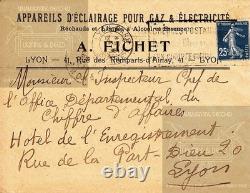 APPAREILS D'ÉCLAIRAGE POUR GAZ & ÉLECTRICITÉ
Réchauds et Lampes à Alcool et Essence
A. FICHET
LYON — 41, Rue des Remparts-d'Ainay, 41 — LYON
25
Monsieur l'Inspecteur Chef de
l'Office Départemental du
Chiffre d'affaires
Hotel de l'Enregistrement
Rue de la Part-Dieu 20
Lyon